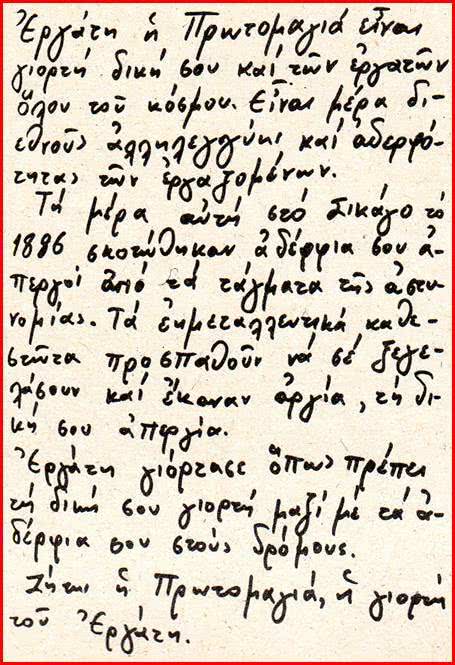 Ἐργάτη ἡ Πρωτομαγιά εἶναι
γιορτή δική σου καί τῶν ἐργατῶν
ὅλου τοῦ κόσμου. Εἶναι μέρα δι-
εθνοῦς ἀλληλεγγύης καί ἀδερφό-
τητας τῶν ἐργαζομένων.
Τή μέρα αὐτή στό Σικάγο τό
1886 σκοτώθηκαν ἀδέρφια σου ἀ-
περγοί ἀπό τά τάγματα τῆς ἀστυ-
νομίας. Τά ἐκμεταλλευτικά καθε-
στῶτα προσπαθοῦν νά σέ ξεγε-
λάσουν καί ἔκαναν ἀργία, τή δι-
κή σου ἀπεργία.
Ἐργάτη γιόρτασε ὅπως πρέπει
τή δική σου γιορτή μαζί μέ τά ἀ-
δέρφια σου στούς δρόμους.
Ζήτω ἡ Πρωτομαγιά, ἡ γιορτή
τοῦ Ἐργάτη.